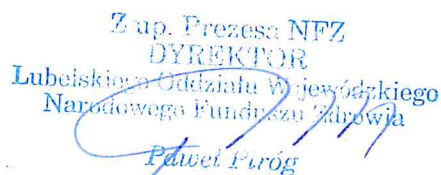 Z up. Prezesa NFZ
DYREKTOR
Lubelskiego Oddziału Wojewódzkiego
Narodowego Funduszu Zdrowia
Paweł Piróg